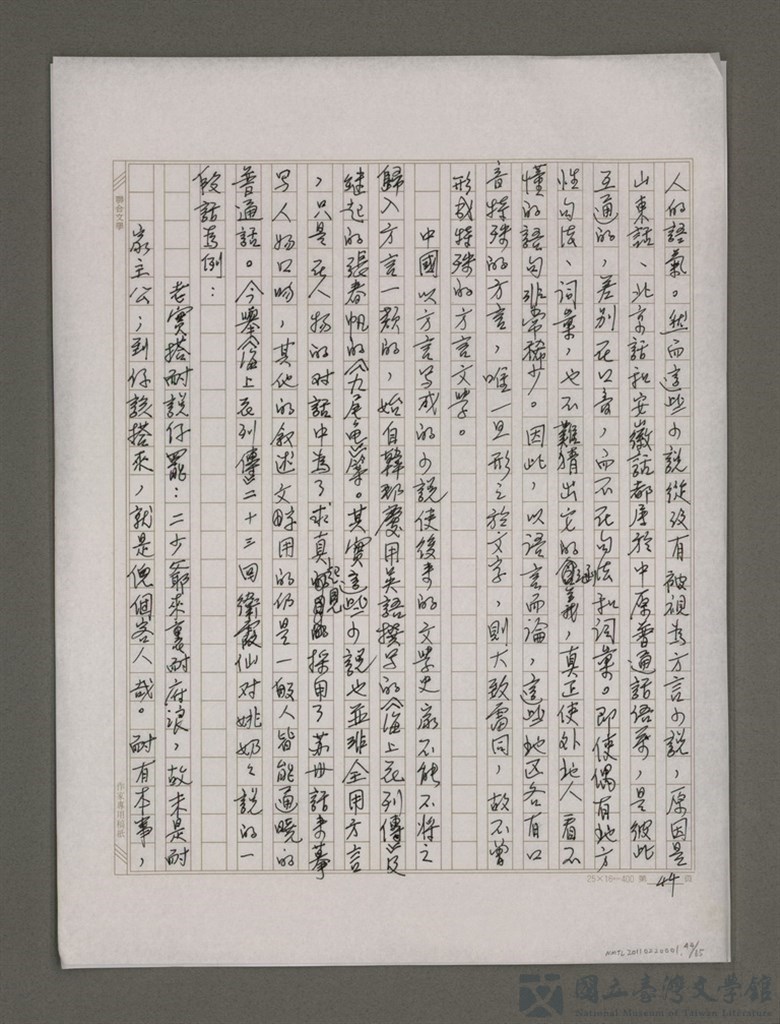 人的語氣。然而這些小說從沒有被視為方言小說，原因是
山東話、北京話和安徽話都屬於中原普通話語系，是彼此
互通的，差別在口音，而不在句法和詞彙。即使偶有地方
性句法、詞彙，也不難猜出它的涵義，真正使外地人看不
懂的語句非常稀少。因此，以語言而論，這些地区各有口
音特殊的方言，唯一旦形之於文字，則大致雷同，故不曾
形成特殊的方言文学。
中國以方言写成的小說使後來的文學史家不能不將之
歸入方言一類的，始自韓邦慶用吳語撰写的《海上花列傳》及
繼起的張春帆的《九尾龜》等。其實這些小說也並非全用方言
，只是在人物的对話中為了求真起見採用了苏州話来摹
写人物口吻，其他的叙述文字用的仍是一般人皆能通曉的
普通話。今舉《海上花列傳》二十三回衛霞仙对姚奶々說的一
段話為例：
老實搭耐說仔罷：二少爺來裏耐府浪，故末是耐
家主公；到仔該搭來，就是倪個客人哉。耐有本事，
聯合文學
作家專用稿紙
25×16=400 第 44 頁
NMTL20110220001 44/65
國立臺灣文學館
National Museum of Taiwan Literature